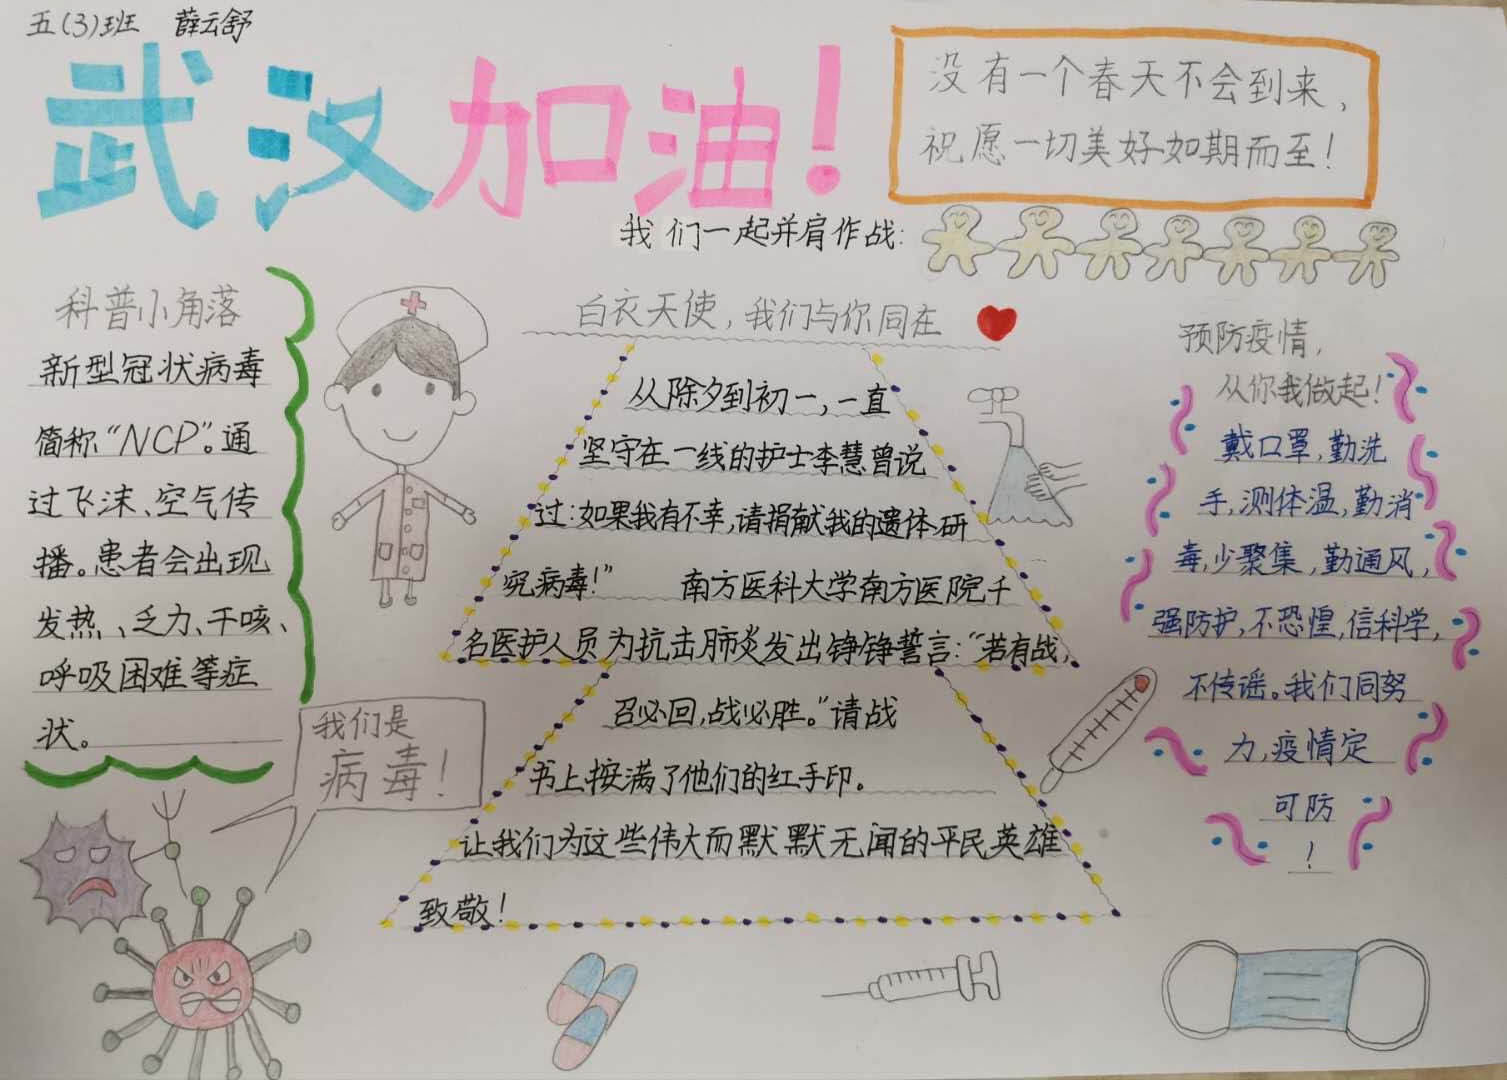 五(3)班 薛云舒
武汉加油!
没有一个春天不会到来,
祝愿一切美好如期而至!
我们一起并肩作战:
科普小角落
新型冠状病毒
简称“NCP”。通
过飞沫、空气传
播。患者会出现
发热、乏力、干咳、
呼吸困难等症
状。
我们是
病毒!
白衣天使,我们与你同在
从除夕到初一,一直
坚守在一线的护士李慧曾说
过:如果我有不幸,请捐献我的遗体研
究病毒!” 南方医科大学南方医院千
名医护人员为抗击肺炎发出铮铮誓言:“若有战,
召必回,战必胜。”请战
书上按满了他们的红手印。
让我们为这些伟大而默默无闻的平民英雄
致敬!
预防疫情,
从你我做起!
戴口罩,勤洗
手,测体温,勤消
毒,少聚集,勤通风,
强防护,不恐惶,信科学,
不传谣。我们同努
力,疫情定
可防
!